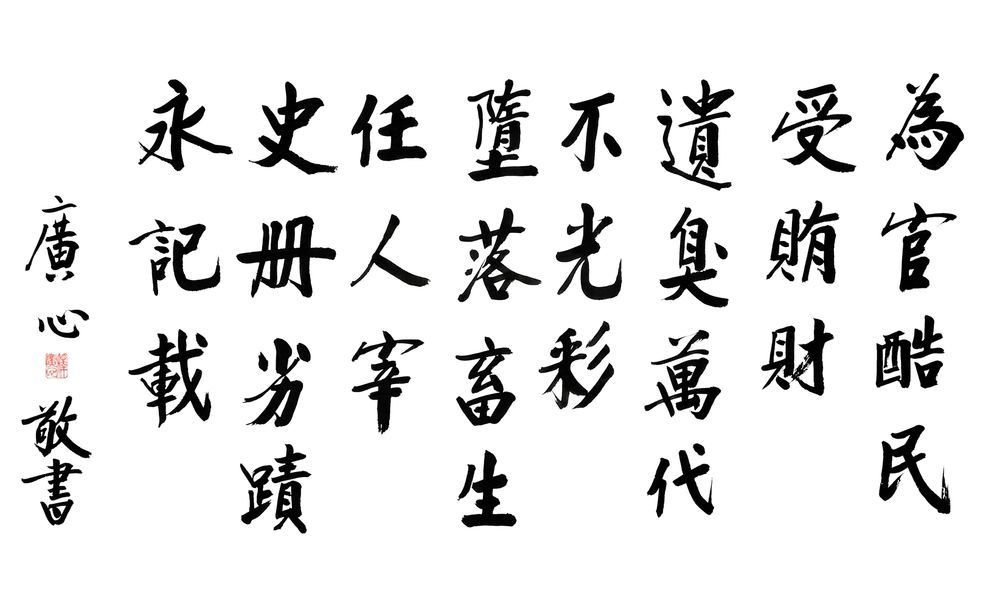 為官酷民
受賄財
遺臭萬代
不光彩
墮落畜生
任人宰
史册劣蹟
永記載
廣心
敬書